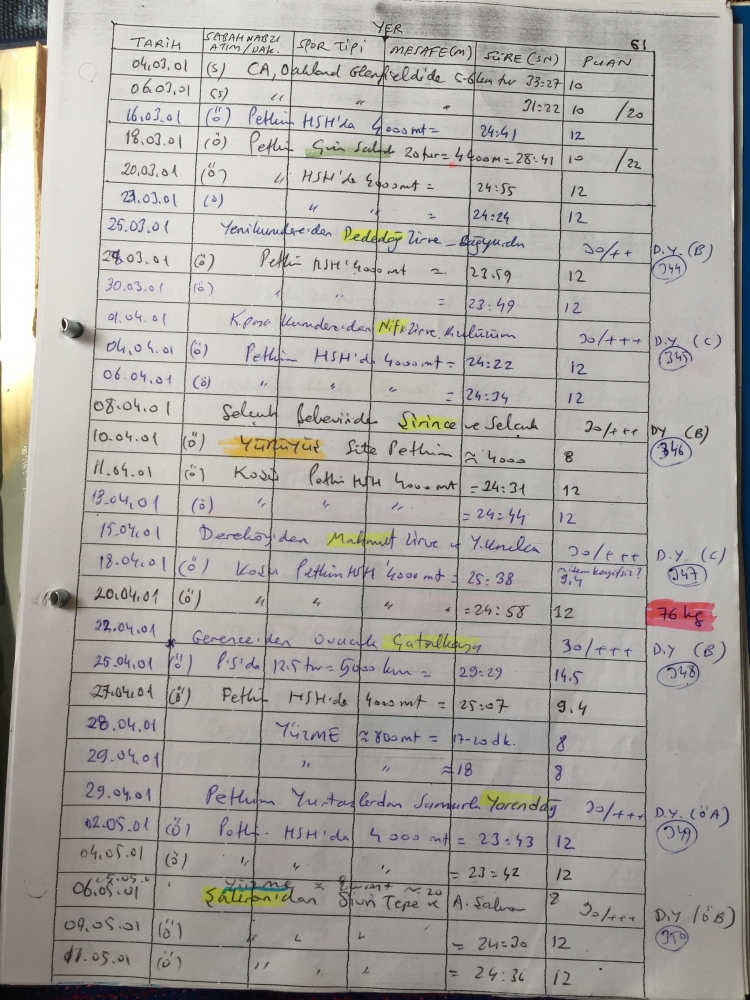 YER
61
TARİH SABAH NABZI ATIM/DAK. SPOR TİPİ MESAFE(M) SÜRE(SN) PUAN
04.03.01 (s) CA, Oakland Glenfield'de 5-6km tur 33:27 10
06.03.01 (s) " " " 31:22 10 /20
16.03.01 (Ö) Petkim HSH'da 4000mt = 24:41 12
18.03.01 (Ö) Petkim Salonda 20tur = 4400m = 28:41 10 /22
20.03.01 (Ö) " HSH'da 4000mt = 24:55 12
23.03.01 (Ö) " " = 24:24 12
25.03.01 Yenikundereden Dededağ Zirve _ Bağyurdu 30/++ D.Y. (B)
344
28.03.01 (Ö) Petkim HSH' 4000mt = 23.59 12
30.03.01 (Ö) " = 23:49 12
01.04.01 Nif Zirve 30/+++ D.Y (C)
345
04.04.01 (Ö) Petkim HSH'da 4000mt = 24:22 12
06.04.01 (Ö) " " " = 24:34 12
08.04.01 Selçuk Şirince ve Selçuk 30/+++ DY (B)
346
10.04.01 (Ö) YÜRÜYÜŞ Site Petkim ≈ 4000 8
11.04.01 (Ö) Koşu Petkim HSH 4000mt = 24:31 12
13.04.01 (Ö) " " " = 24:44 12
15.04.01 Dereköyden Mahmut Zirve 30/+++ D.Y. (C)
347
18.04.01 (Ö) Koşu Petkim HSH '4000mt = 25:38 9,4
20.04.01 (Ö) " " " = 24:58 12 76 kg
22.04.01 * Gerenceden Ovacık Çatalkaya 30/+++ D.Y (B)
348
25.04.01 (Ö) P.S'da 12.5 tur = 5000 km = 29:29 14.5
27.04.01 (Ö) Petkim HSH'da 4000mt = 25:07 9.4
28.04.01 YÜZME ≈ 800mt = 17-20dk. 8
29.04.01 " " ≈18 8
29.04.01 Petkim Yurtaşlardan Samurlu Yarendağ 30/+++ D.Y. (ÖA)
349
02.05.01 (Ö) Petkim HSH'da 4000 mt = 23:43 12
04.05.01 (Ö) " " " = 23:42 12
Yüzme ≈20 8
06.05.01 Şakran'dan Sivri Tepe ve A. Şakran 30/+++ D.Y (ÖB)
350
09.05.01 (Ö) " " " = 24:30 12
11.05.01 (Ö) " " = 24:36 12